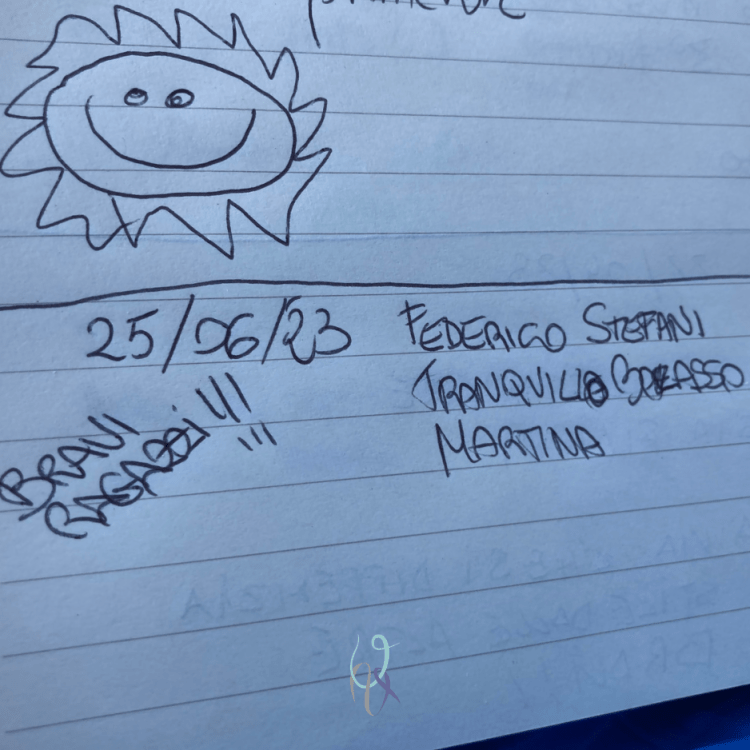 25/06/23
FEDERICO STEFANI
TRANQUILLO
MARTINA
BRAVI
RAGAZZI!!!
!!!